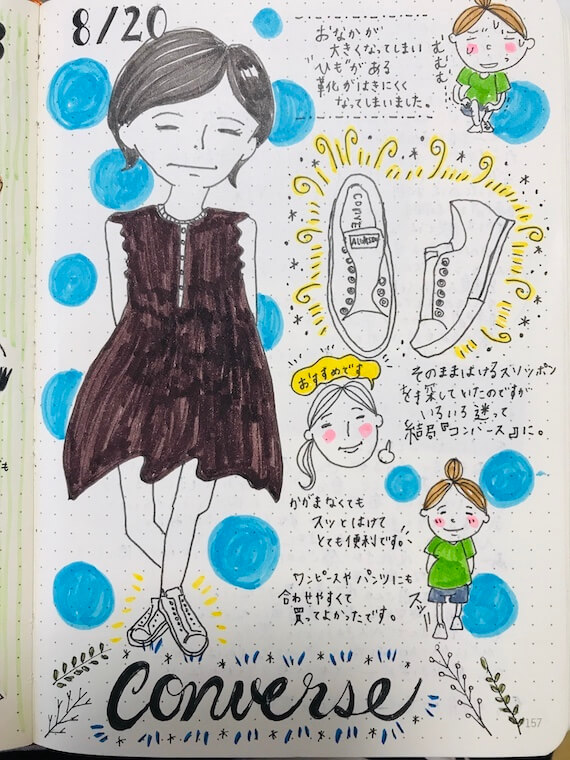 8/20
おなかが
大きくなってしまい
"ひも"がある
靴がはきにくく
なってしまいました。
むむむ
CONVE
ALLSTAR
おすすめです
そのままはけるスリッポン
を探していたのですが
いろいろ迷って
結局『コンバース』に。
かがまなくても
スッとはけて
とても便利です。
ワンピースやパンツにも
合わせやすくて
買ってよかったです。
スッ!!
Converse
157